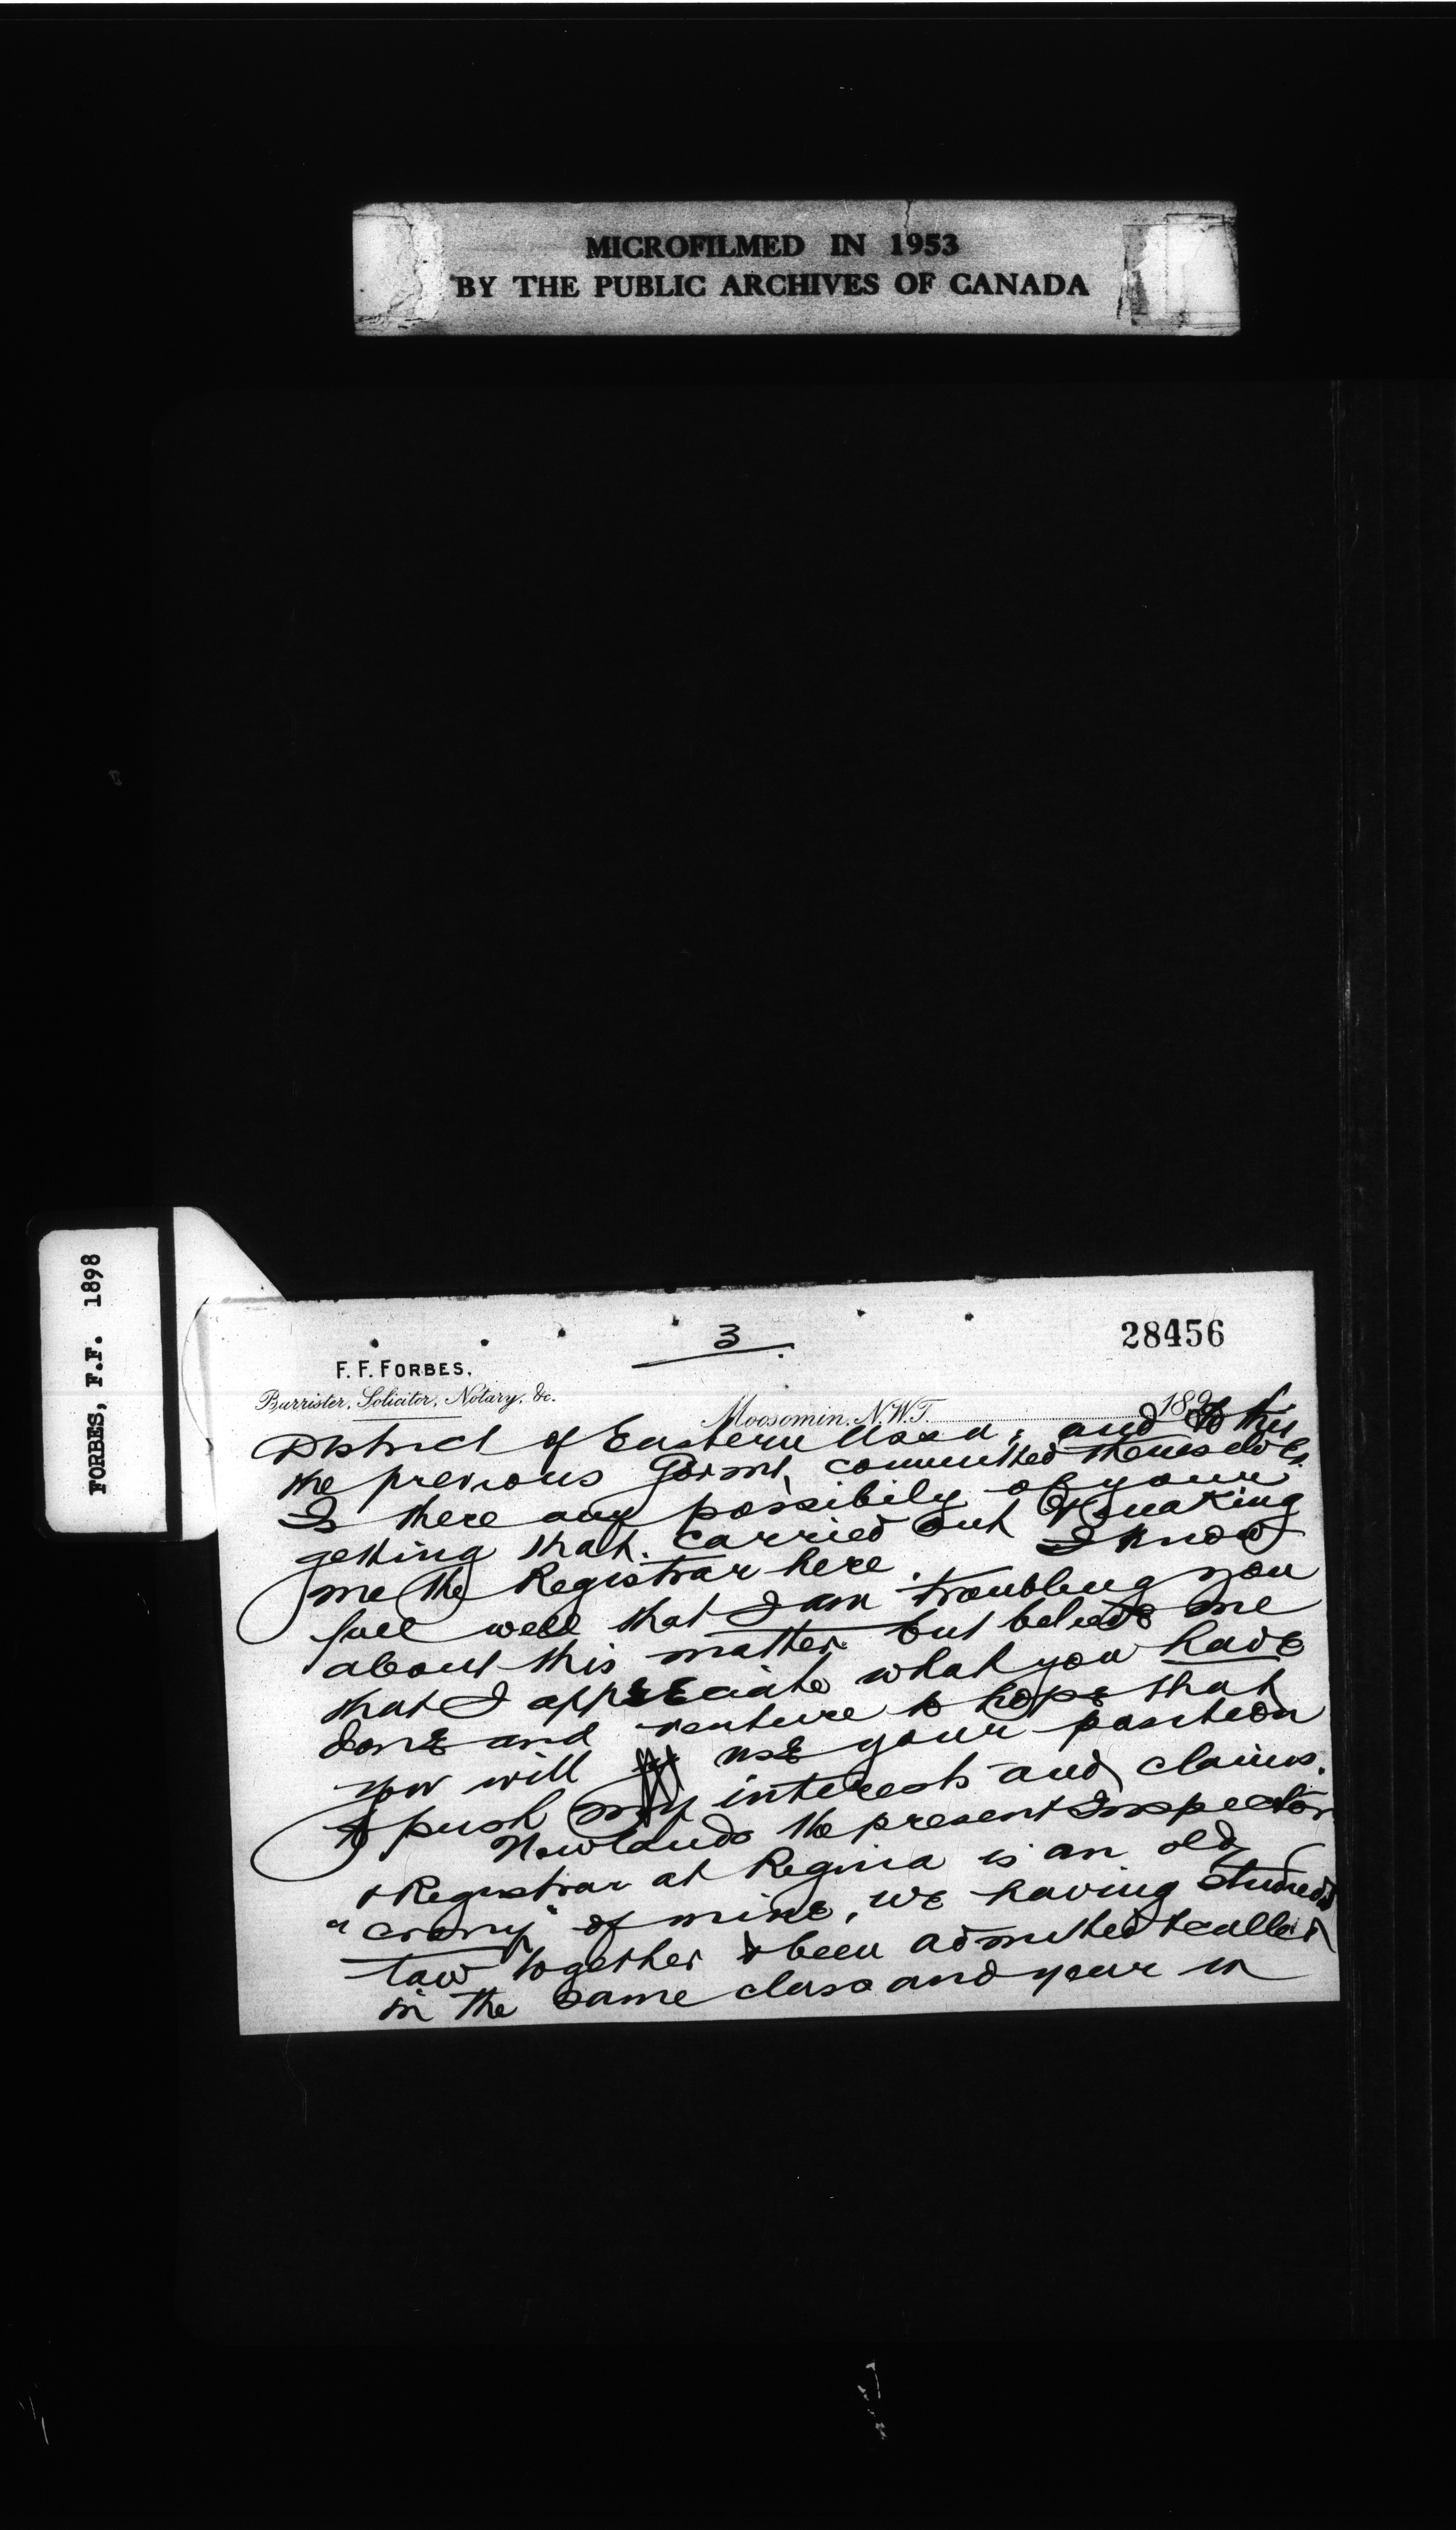 MICROFILMED IN 1953
BY THE PUBLIC ARCHIVES OF CANADA
FORBES, F.F. 1898
3
28456
F. F. FORBES.
Barrister, Solicitor, Notary, &c.
Moosomin, N.W.T. 189
District of Eastern Assa, and to this
the previous Govmt, committed themselves.
Is there any possibily of your
getting that carried out & making
me the Registrar here. I know
full well that I am troubling you
about this matter but believe me
that I appreciate what you have
done and venture to hope that
you will use your position
to push my interests and claims.
Newlands the present Inspector
& Registrar at Regina is an old
"crony" of mine, we having studied
law together & been admitted & called
in the same class and year in